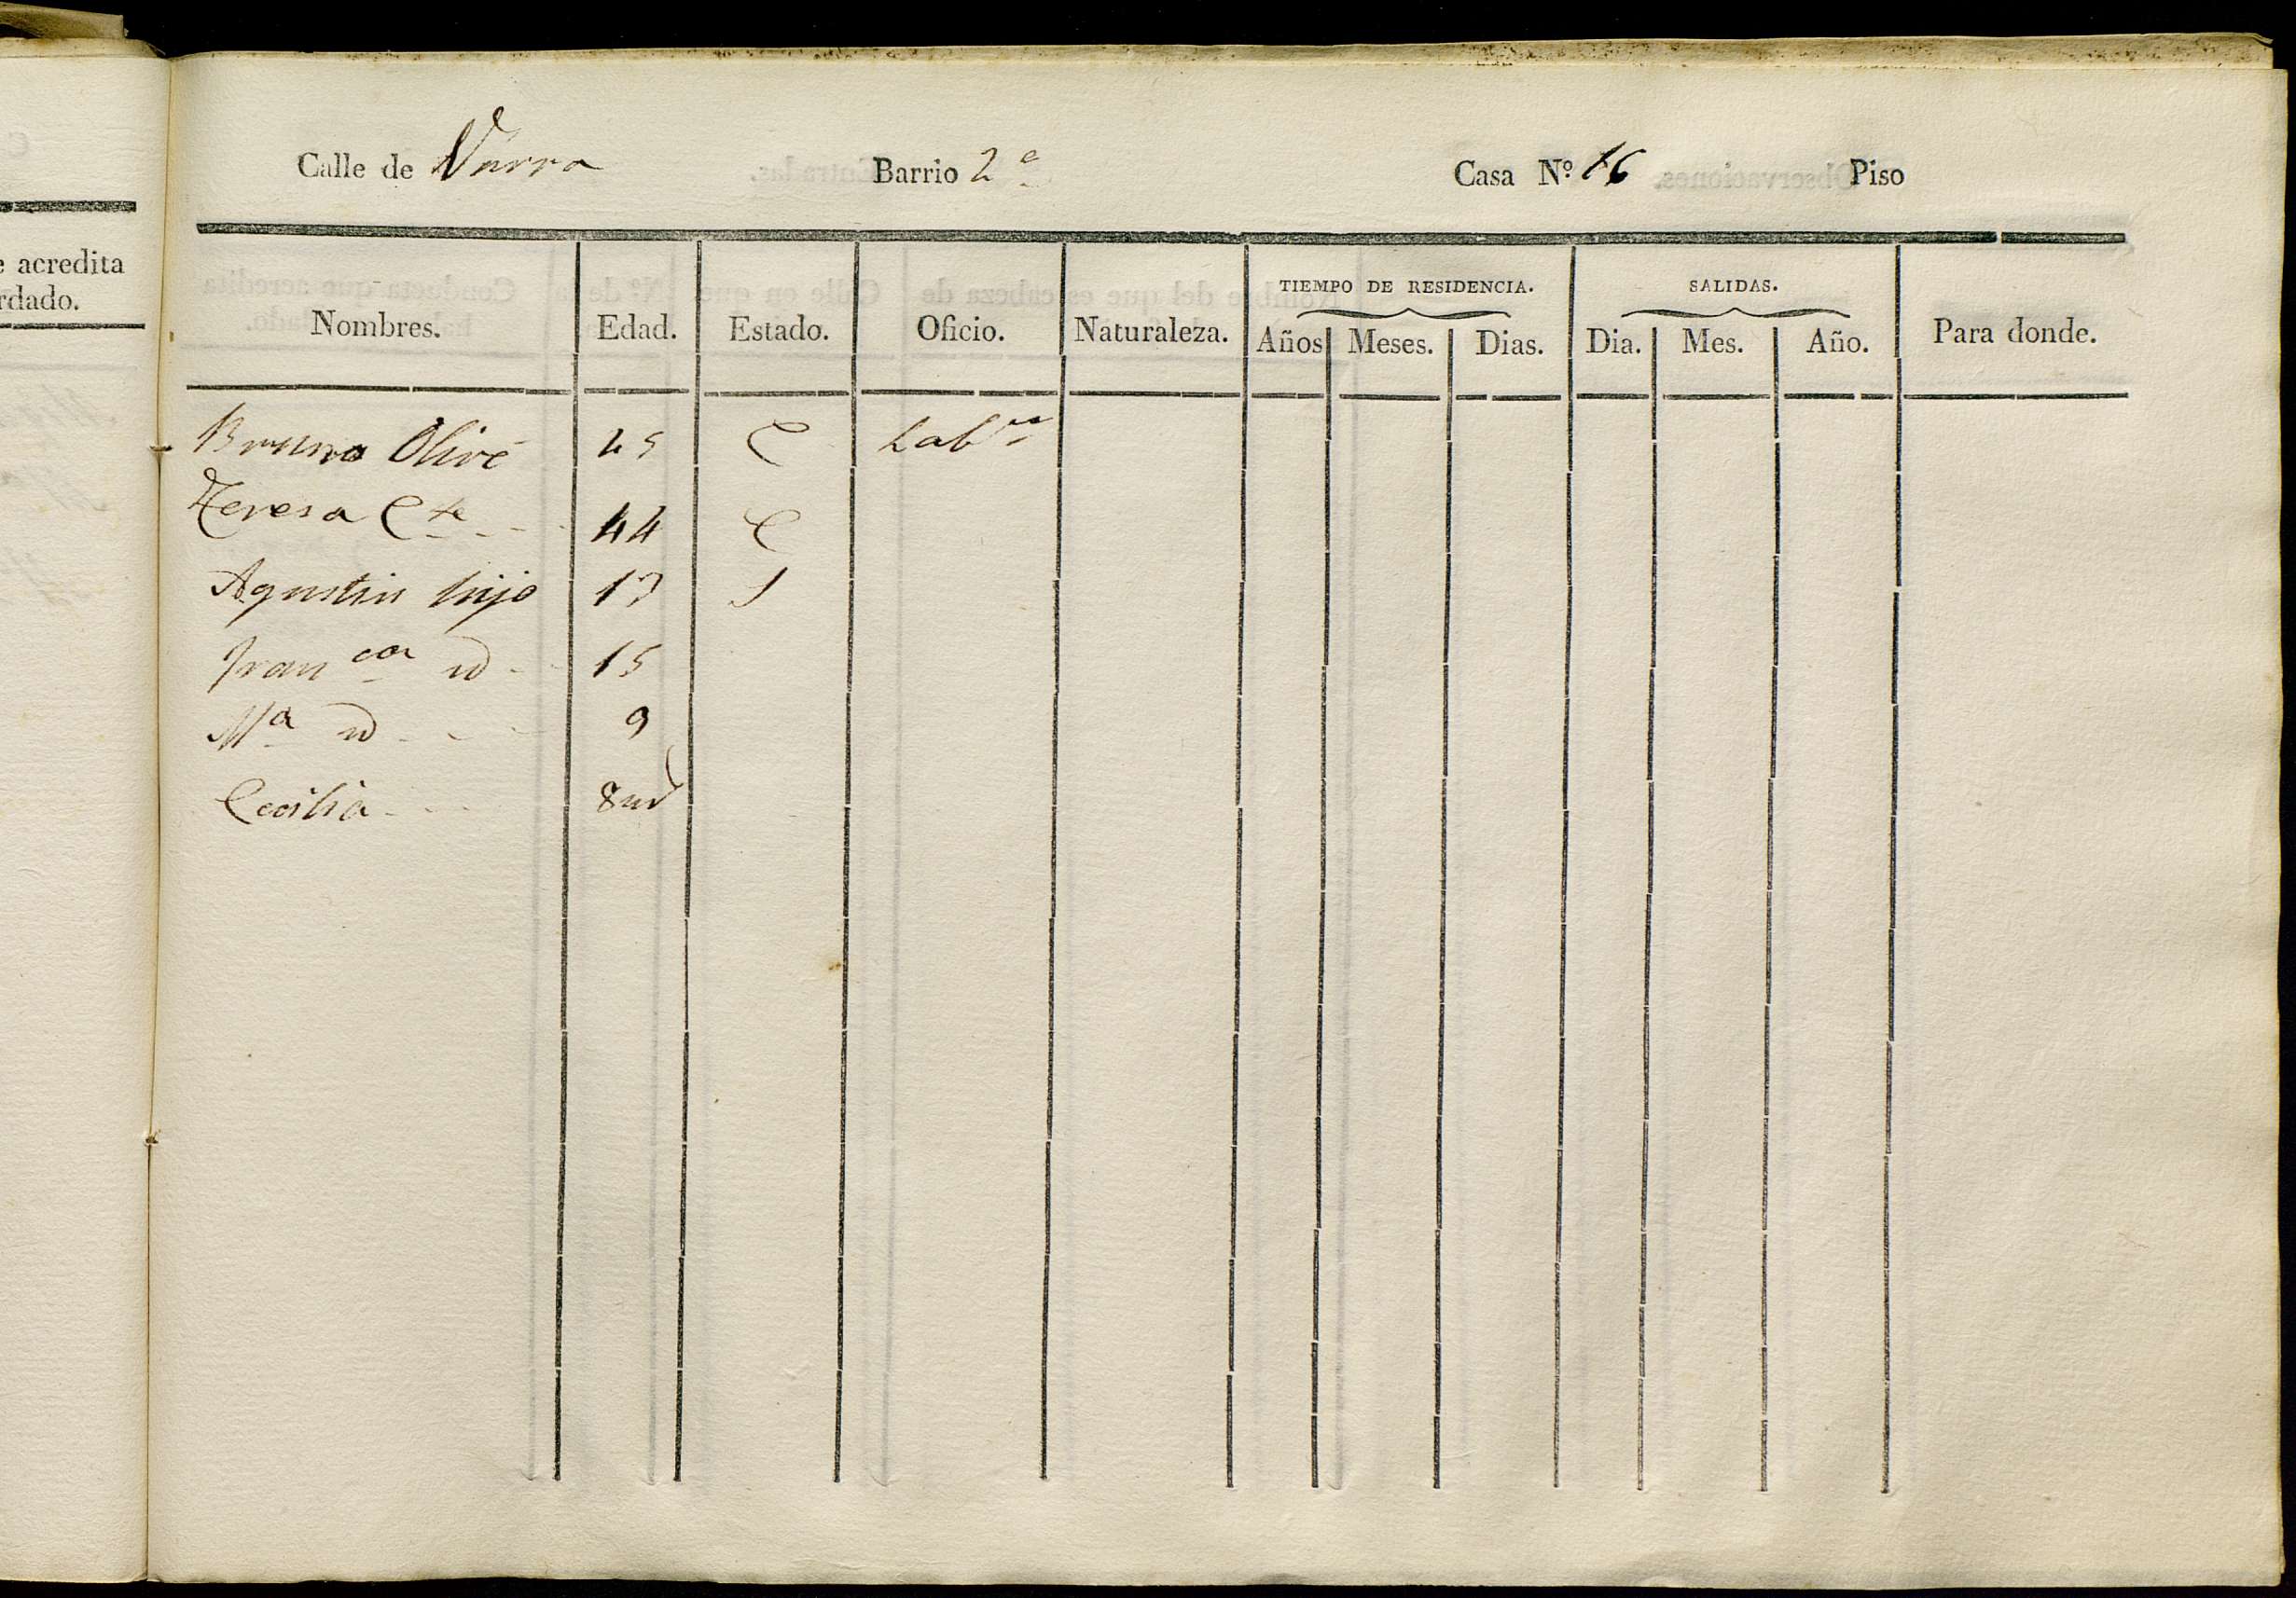 e acredita
rdado.
Calle de Barrio 2e Casa N.º 16 Piso
TIEMPO DE RESIDENCIA. SALIDAS.
Nombres. Edad. Estado. Oficio. Naturaleza. Años Meses. Dias. Dia. Mes. Año. Para donde.
Bruno Olivé 45 C Labor
Teresa Cte 44 C
Agustin hijo 17 S
Franca id 15
Ma id 9
Cecilia